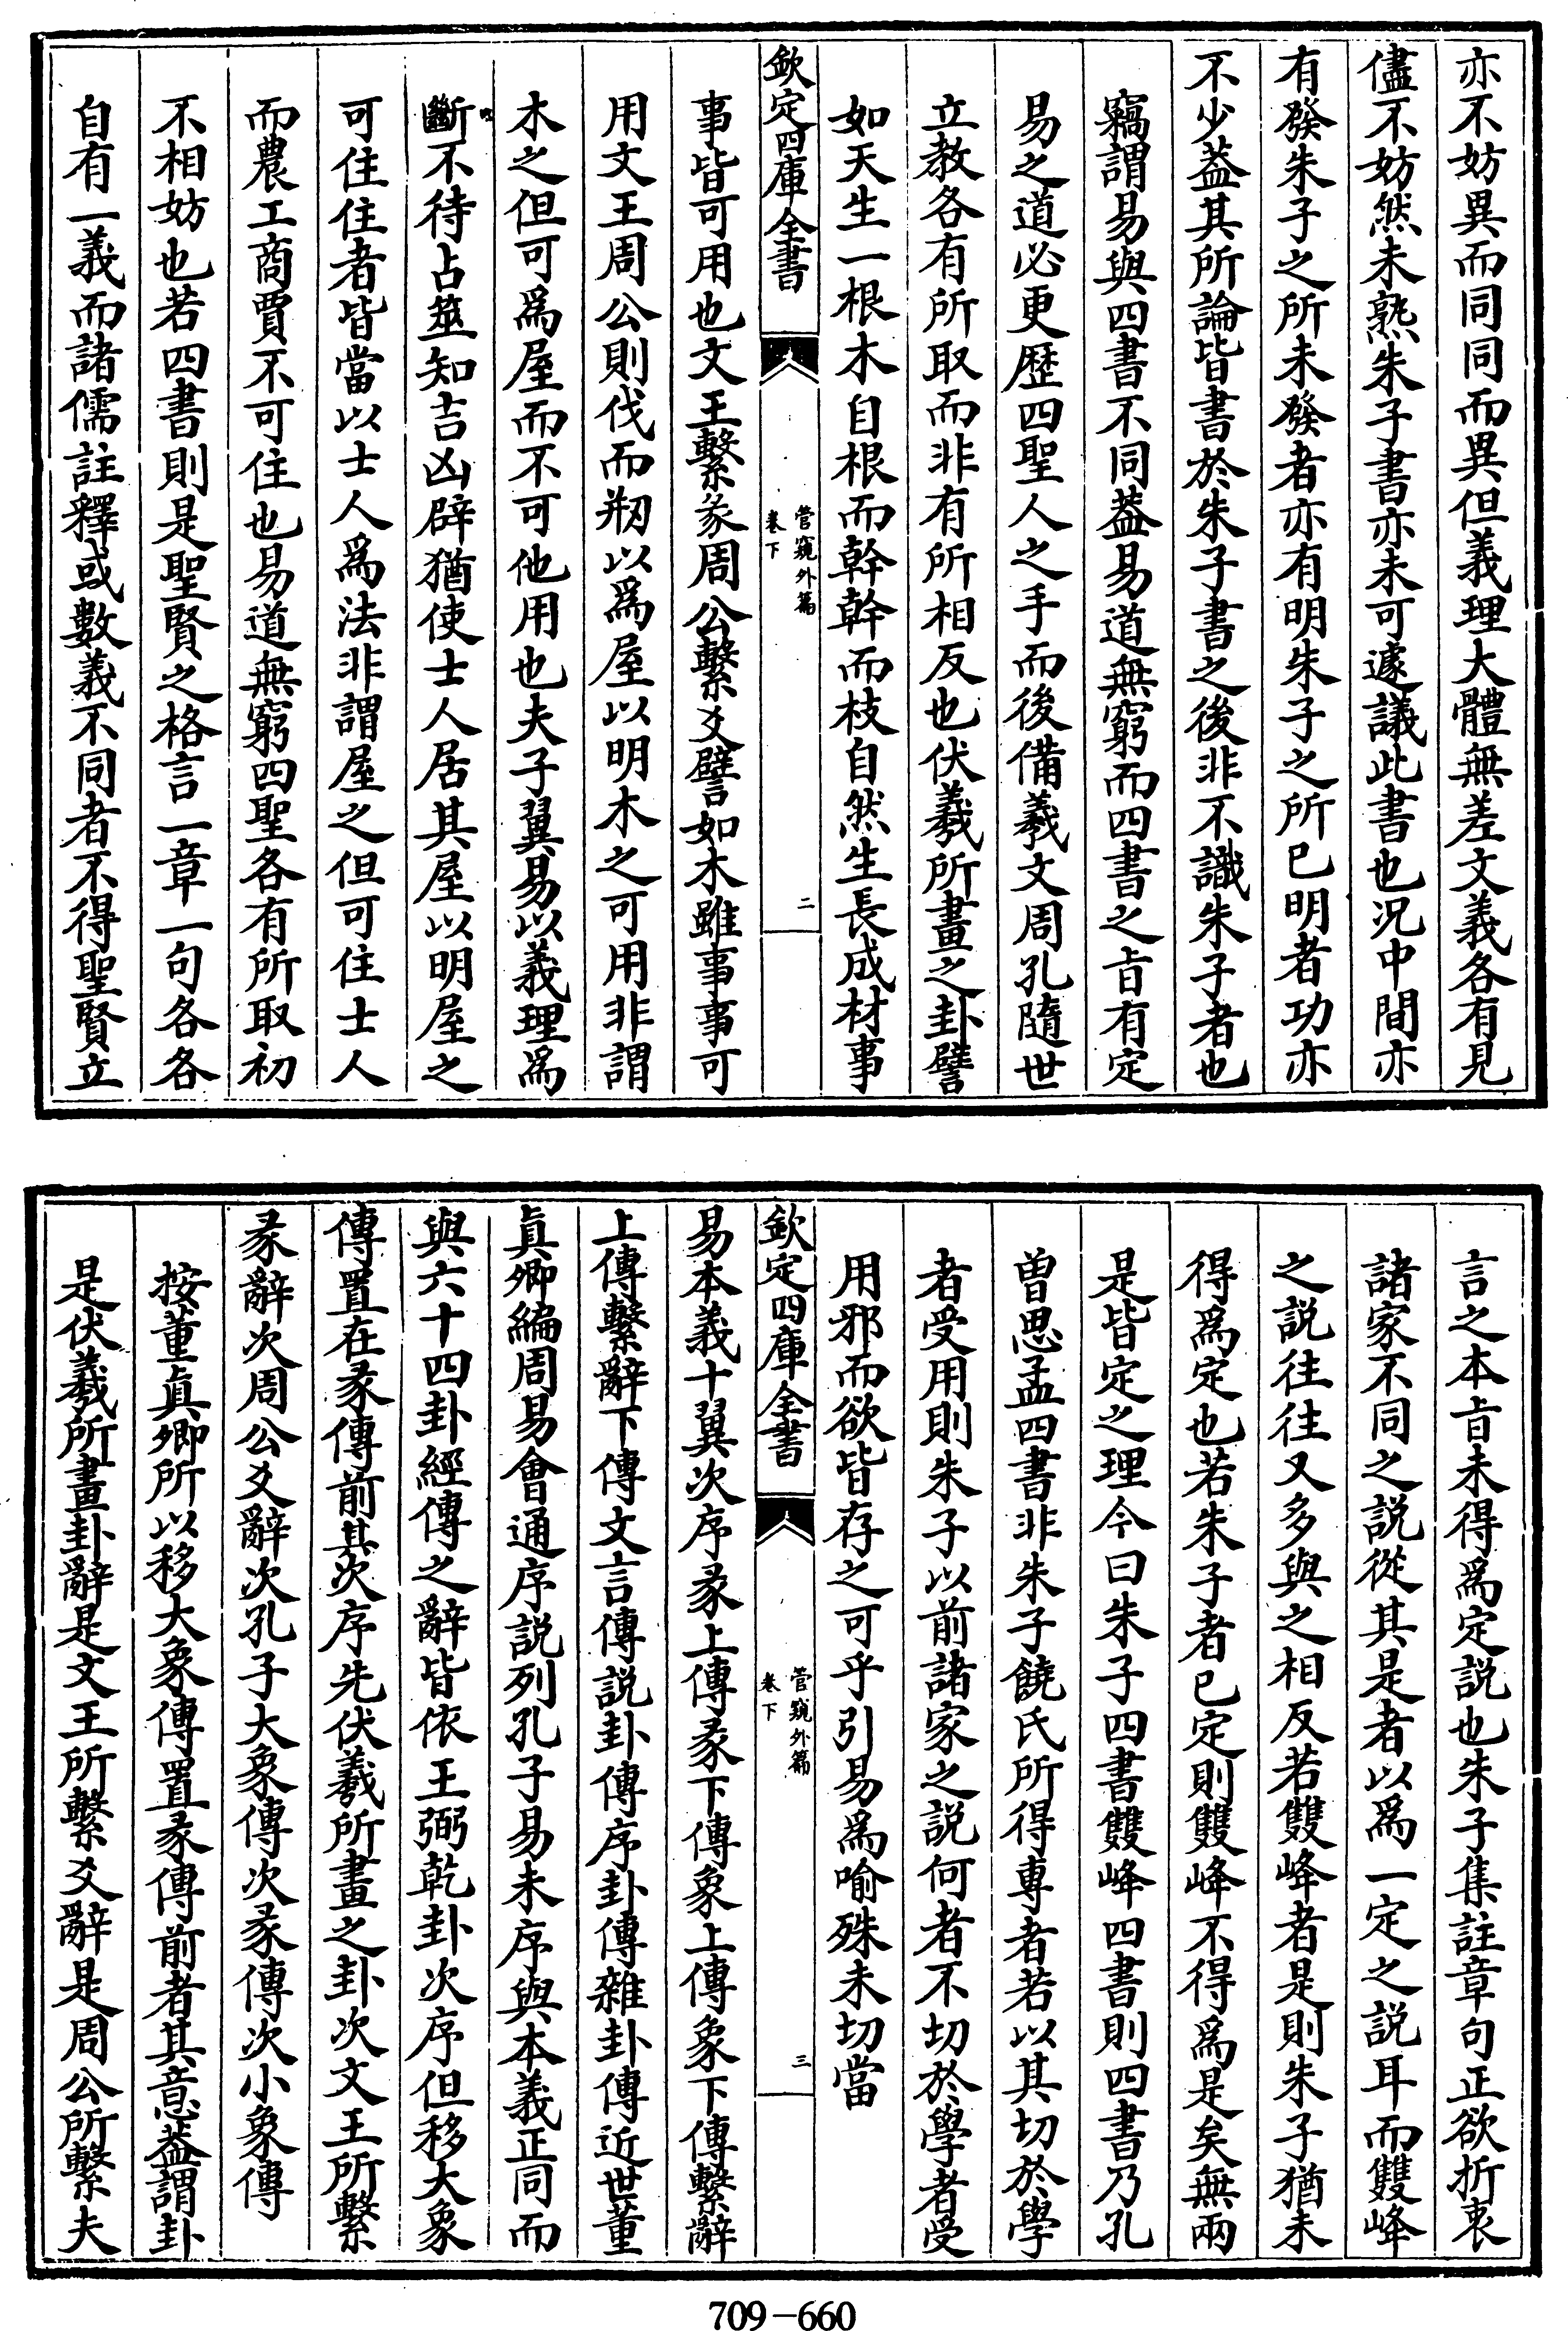 亦不妨異而同同而異但義理大體無差文義各有見
儘不妨然未熟朱子書亦未可遽議此書也况中間亦
有發朱子之所未發者亦有明朱子之所已明者功亦
不少葢其所論皆書於朱子書之後非不識朱子者也
竊謂易與四書不同葢易道無窮而四書之㫖有定
易之道必更歴四聖人之手而後備羲文周孔隨世
立教各有所取而非有所相反也伏羲所畫之卦譬
如天生一根木自根而幹幹而枝自然生長成材事
欽定四庫全書
管窺外篇
卷下
二
事皆可用也文王繫彖周公繫爻譬如木雖事事可
用文王周公則伐而剏以為屋以明木之可用非謂
木之但可為屋而不可他用也夫子翼易以義理為
斷不待占筮知吉凶辟猶使士人居其屋以明屋之
可住住者皆當以士人為法非謂屋之但可住士人
而農工商賈不可住也易道無窮四聖各有所取初
不相妨也若四書則是聖賢之格言一章一句各各
自有一義而諸儒註釋或數義不同者不得聖賢立
言之本㫖未得為定説也朱子集註章句正欲折衷
諸家不同之説從其是者以為一定之説耳而雙峰
之説往往又多與之相反若雙峰者是則朱子猶未
得為定也若朱子者已定則雙峰不得為是矣無兩
是皆定之理今曰朱子四書雙峰四書則四書乃孔
曽思孟四書非朱子饒氏所得專者若以其切於學
者受用則朱子以前諸家之説何者不切於學者受
用邪而欲皆存之可乎引易為喻殊未切當
欽定四庫全書
管窺外篇
卷下
三
易本義十翼次序彖上傳彖下傳象上傳象下傳繫辭
上傳繫辭下傳文言傳説卦傳序卦傳雜卦傳近世董
真卿編周易會通序説列孔子易未序與本義正同而
與六十四卦經傳之辭皆依王弼乾卦次序但移大象
傳置在彖傳前其次序先伏羲所畫之卦次文王所繫
彖辭次周公爻辭次孔子大象傳次彖傳次小象傳
按董真卿所以移大象傳置彖傳前者其意葢謂卦
是伏羲所畫卦辭是文王所繫爻辭是周公所繫夫
709-660